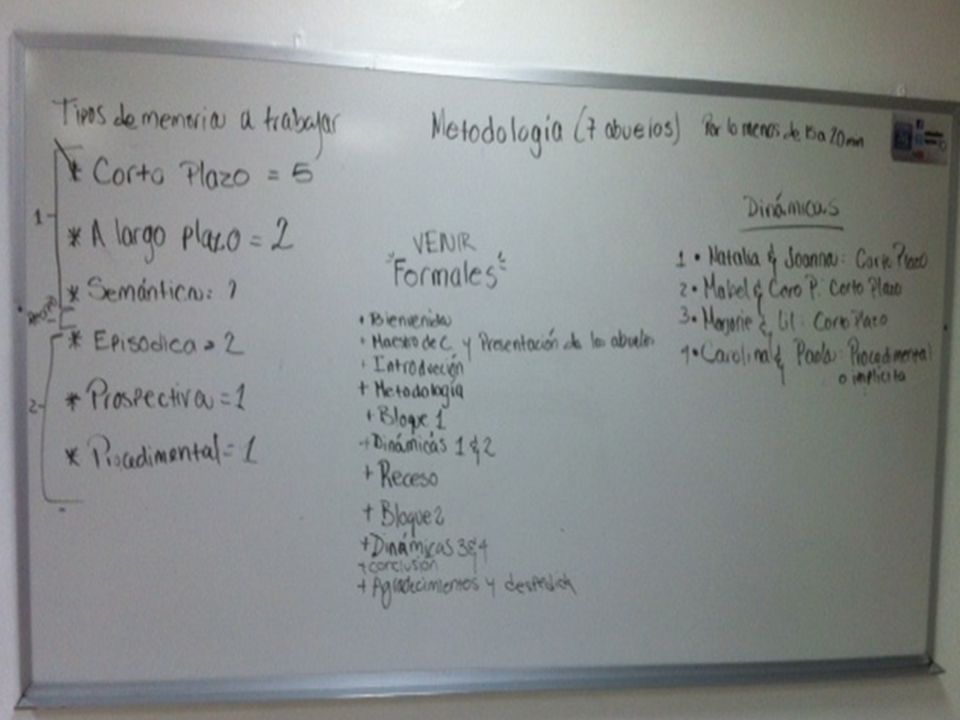 Tipos de memoria a trabajar
* Corto Plazo = 5
* A largo plazo = 2
* Semántica:
* Episodica = 2
* Prospectiva = 1
* Procedimental = 1
1
2
Metodología (7 abuelos) Por lo menos de 15 a 20 min
VENIR
"Formales"
• Bienvenida
• Maestro de C. y Presentación de los abuelos
• Introducción
+ Metodología
+ Bloque 1
+ Dinámicas 1 & 2
+ Receso
+ Bloque 2
+ Dinámicas 3 & 4
+ conclusión
+ Agradecimientos y despedida
Dinámicas
1 • Natalia & Joanna: Corto Plazo
2 • Mabel & Caro P: Corto Plazo
3 • Marjorie & Lil: Corto Plazo
4 • Carolina & Paola: Procedimental
o implicita